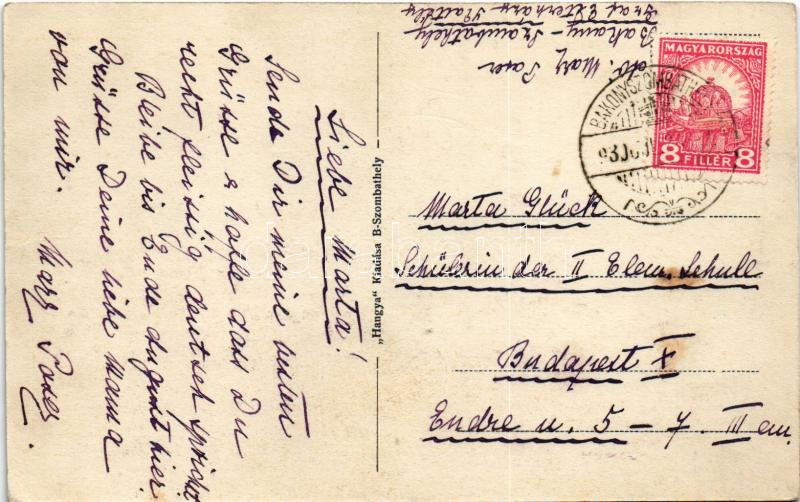 Liebe Marta!
Sende Dir meine besten
Grüsse & hoffe dass Du
recht fleissig deutsch sprichst.
Bleibe bis Ende August hier.
Grüsse Deine liebe Mama
von mir.
„Hangya" Kiadása B-Szombathely
Bakony-Szombathely
Graf Esterházy Kastély
MAGYARORSZÁG
8 FILLÉR 8
BAKONYSZOMBATHELY
Marta Glück
Schülerin der II Elem. Schule
Budapest X
Endre u. 5-7. III em.